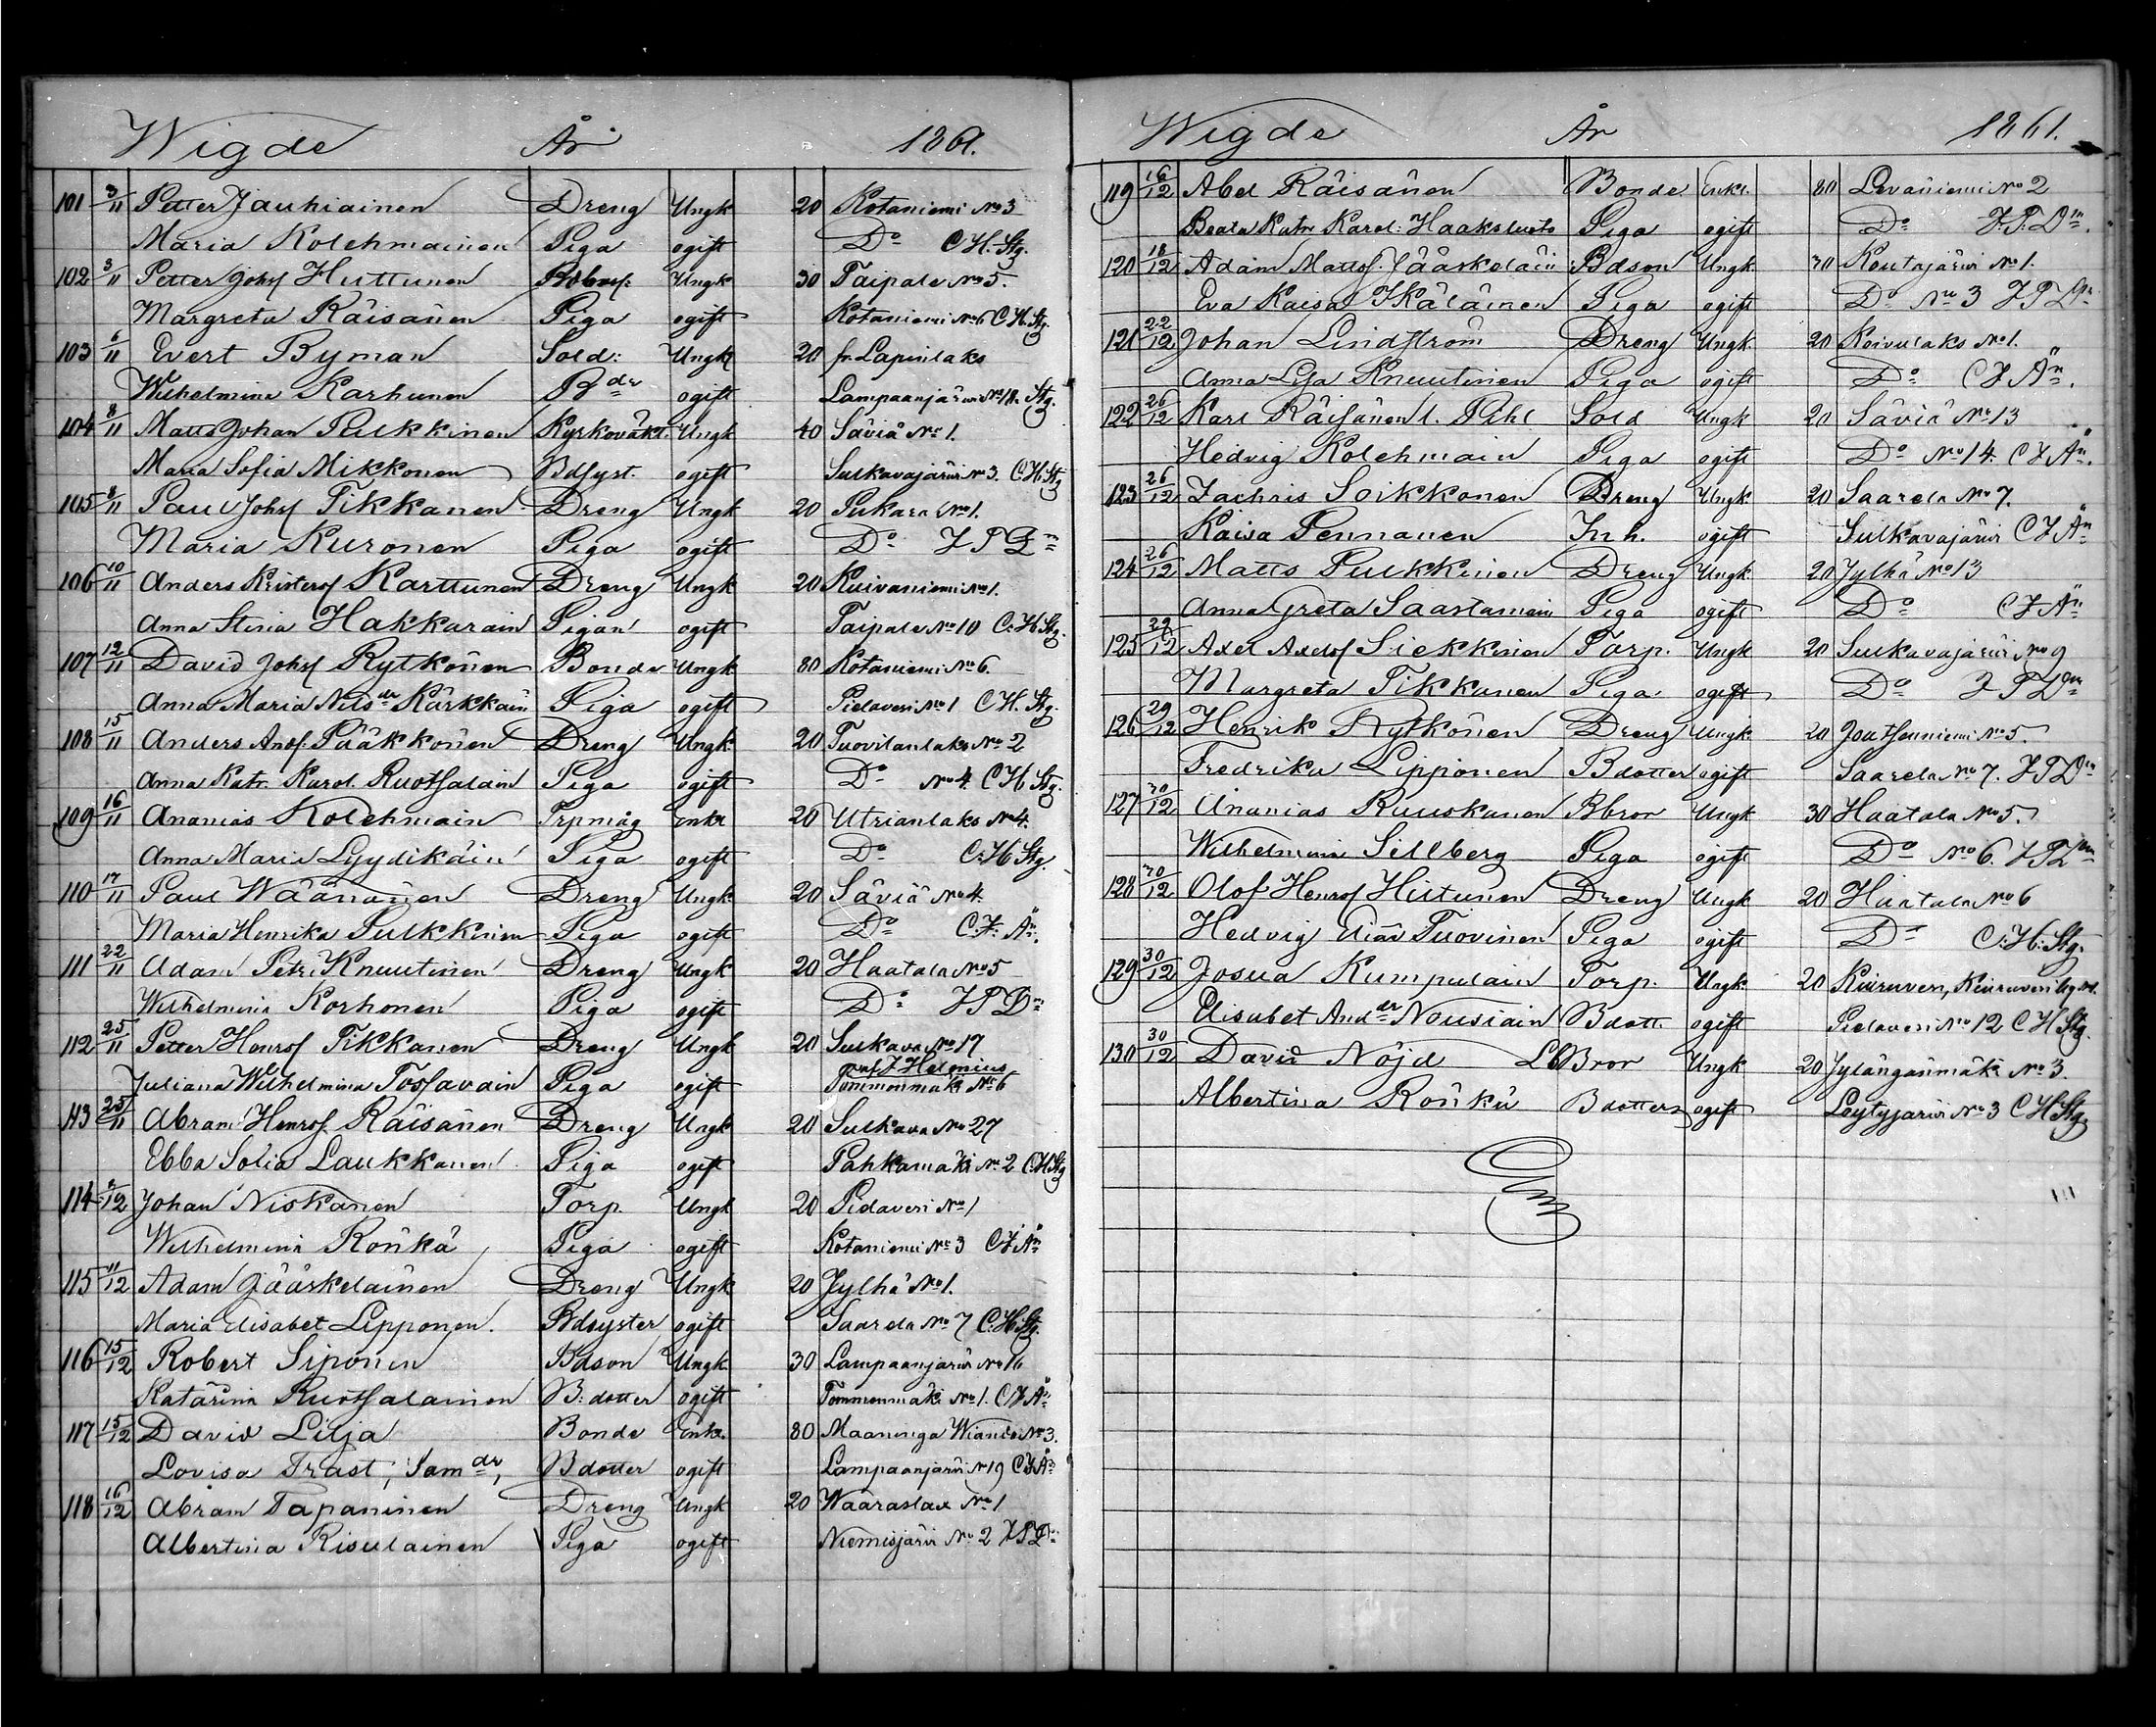 Wigde År 1861.
101 3/11 Petter Jauhiainen Dreng Ungk 20 Kotaniemi No 3
Maria Kolehmainen Piga ogift Do C.H. Stg.
102 3/11 Petter Johs Huttunen Ungk 30 Taipale No 5.
Margreta Räisänen Piga ogift Kotaniemi No 6 C.H. Stg.
103 6/11 Evert Byman Sold: Ungk 20 fr. Lapinlaks
Wilhelmina Karhunen Bdr ogift Lampaanjärwi No 18 Stg.
104 8/11 Matts Johan Pulkkinen Kyrkoväkt. Ungk 40 Säviä No 1.
Maria Sofia Mikkonen Bdsyst. ogift Sulkavajärwi No 3. C.H. Stg
105 8/11 Paul Johs Tikkanen Dreng Ungk 20 Pukara No 1.
Maria Kuronen Piga ogift Do J P Dm
106 10/11 Anders Kristers Karttunen Dreng Ungk 20 Kuivaniemi No 1.
Anna Stina Hakkarain Pigan ogift Taipale No 10 C.H. Stg.
107 12/11 David Johs Rytkönen Bonde Ungk 80 Kotaniemi No 6.
Anna Maria Nilsdr Kärkkäin Piga ogift Pielavesi No 1 C.H. Stg.
108 15/11 Anders Ands. Pääkkönen Dreng Ungk 20 Tuovilanlaks No 2
Anna Katr. Karol. Ruotsalain Piga ogift Do No 4. C H Stg.
109 16/11 Ananias Kolehmain Trpmåg Enkl 20 Utrianlaks No 4.
Anna Maria Lyydikäin Piga ogift Do C.H. Stg.
110 17/11 Paul Wäänänen Dreng Ungk 20 Säviä No 4.
Maria Henrika Pulkkinen Piga ogift Do C.J. Än.
111 22/11 Adam Petr. Knuutinen Dreng Ungk 20 Haatala No 5
Wilhelmina Korhonen Piga ogift Do J P Dn
112 25/11 Petter Henrs Tikkanen Dreng Ungk 20 Sulkava No 17
J Helenius
Juliana Wilhelmina Tossavain Piga ogift Tommonmäki No 6
113 25/11 Abram Henrs. Räisänen Dreng Ungk 20 Sulkava No 27
Ebba Sofia Laukkanen Piga ogift Pahkamäki No 2 C.H. Stg
114 2/12 Johan Niskanen Torp. Ungk 20 Pielavesi No 1
Wilhelmina Rönkä Piga ogift Kotaniemi No 3 C J Än
115 11/12 Adam Jääskeläinen Dreng Ungk 20 Jylhä No 1.
Maria Elisabet Lipponen. Bdsyster ogift Saarela No 7 C.H. Stg.
116 15/12 Robert Siponen Bdson Ungk 30 Lampaanjärwi No 16
Katarina Ruotsalainen B: dotter ogift Tommonmäki No 1. C J Än
117 15/12 David Lilja Bonde Enkl. 80 Maaninga Wianda No 3.
Lovisa Trast, Samdr, Bdotter ogift Lampaanjärwi No 19 C J Än
118 16/12 Abram Tapaninen Dreng Ungk 20 Waaraslax No 1
Albertina Risulainen Piga ogift Niemisjärwi No 2 J P Dn
Wigde År 1861.
119 16/12 Abel Räisänen Bonde Enkl. 80 Levaniemi No 2
Beata Katr Karol: Haaksluoto Piga ogift Do J. P. Dm.
120 18/12 Adam Matts. Jääskeläin Bdson Ungk. 30 Koutajärwi No 1.
Eva Kaisa Ikäläinen Piga ogift Do No 3 J P Dn
121 22/12 Johan Lindström Dreng Ungk. 20 Koivulaks No 1.
Anna Lisa Knuutinen Piga ogift Do C J Än.
122 26/12 Karl Räisänen l. Pihl Sold Ungk 20 Säviä No 13
Hedvig Kolehmain Piga ogift Do No 14. C J Än.
123 26/12 Zachris Soikkonen Dreng Ungk 20 Saarela No 7.
Kaisa Pennanen Inh. ogift Sulkavajärwi C J Än
124 26/12 Matts Pulkkinen Dreng Ungk 20 Jylhä No 13
Anna Greta Saastamoin Piga ogift Do C J Än
125 29/12 Axel Axels Sickkinen Torp. Ungk 20 Sulkavajärwi No 9
Margreta Tikkanen Piga ogift Do J P Dm
126 29/12 Henrik Rytkönen Dreng Ungk 20 Joutsenniemi No 5.
Fredrika Lipponen Bdotter ogift Saarela No 7. J P Dn
127 30/12 Ananias Ruuskanen Bbror Ungk 30 Haatala No 5.
Wilhelmina Sillberg Piga ogift Do No 6. J P Dm
128 30/12 Olof Henrs Hiltunen Dreng Ungk 20 Haatala No 6
Hedvig Tuovinen Piga ogift Do C. H. Stg.
129 30/12 Josua Kumpulain Torp. Ungk 20 Kiuruvesi, Kiuruvesi
Elisabet Anddr Nousiain Bdott. ogift Pielavesi No 12 C H Stg.
130 30/12 David Nöjd Bror Ungk 20 Jylängänmäki No 3.
Albertina Rönkä Bdotter ogift Löytyjärwi No 3 C H Stg